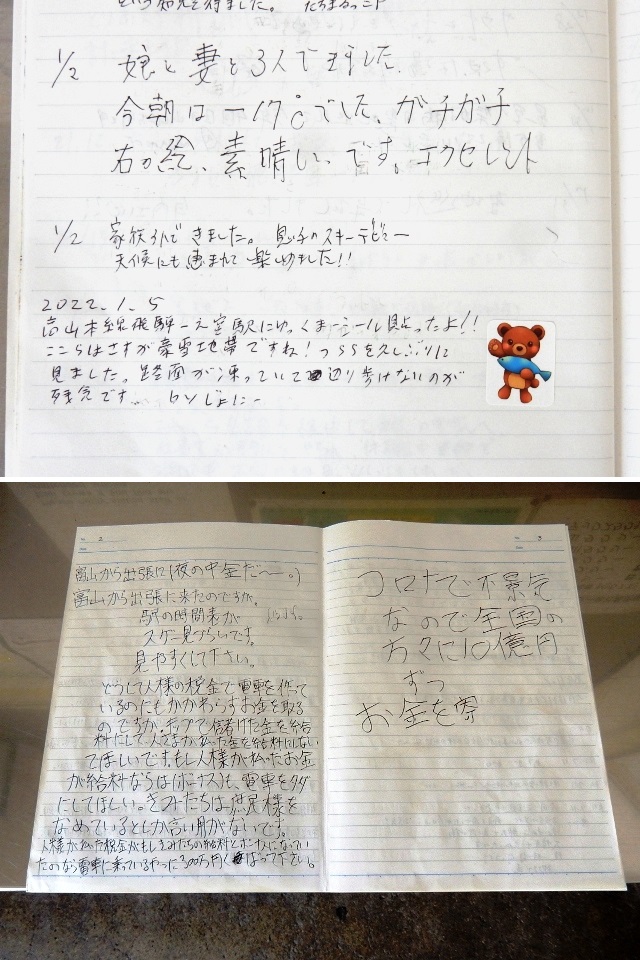 という知見を得ました。
1/2 娘と妻と3人できました。
今朝は-17℃でした、ガチガチ
右の絵、素晴しいです。エクセレント
1/2 家族3人できました。息子のスキーデビュー
天候にも恵まれて楽しめました!!
2022.1.5
高山本線飛騨一ノ宮駅にゆっくまにシール貼ったよ!!
ここらはさすが豪雪地帯ですね!つららを久しぶりに
見ました。路面が凍っていて辺り歩けないのが
残念です…
富山から出張に
富山から出張に来たのですが、
駅の時間表が
スゲー見づらいです。
見やすくして下さい。
どうして人様の税金で電車を作って
いるのにもかかわらずお金を取る
のですか、
てほしいです。もし人様が払ったお金
が給料ならば(ボーナス)も、電車をタダ
にしてほしい。きみたちは庶民様を
なめているとしか言い用がないです。
人様が払った税金がもしきみたちの給料とボーナスになってい
たのなら電車に乗っているやつに300万円くばって下さい。
コロナで不景気
なので全国の
方々に10億円
ずつ
お金を